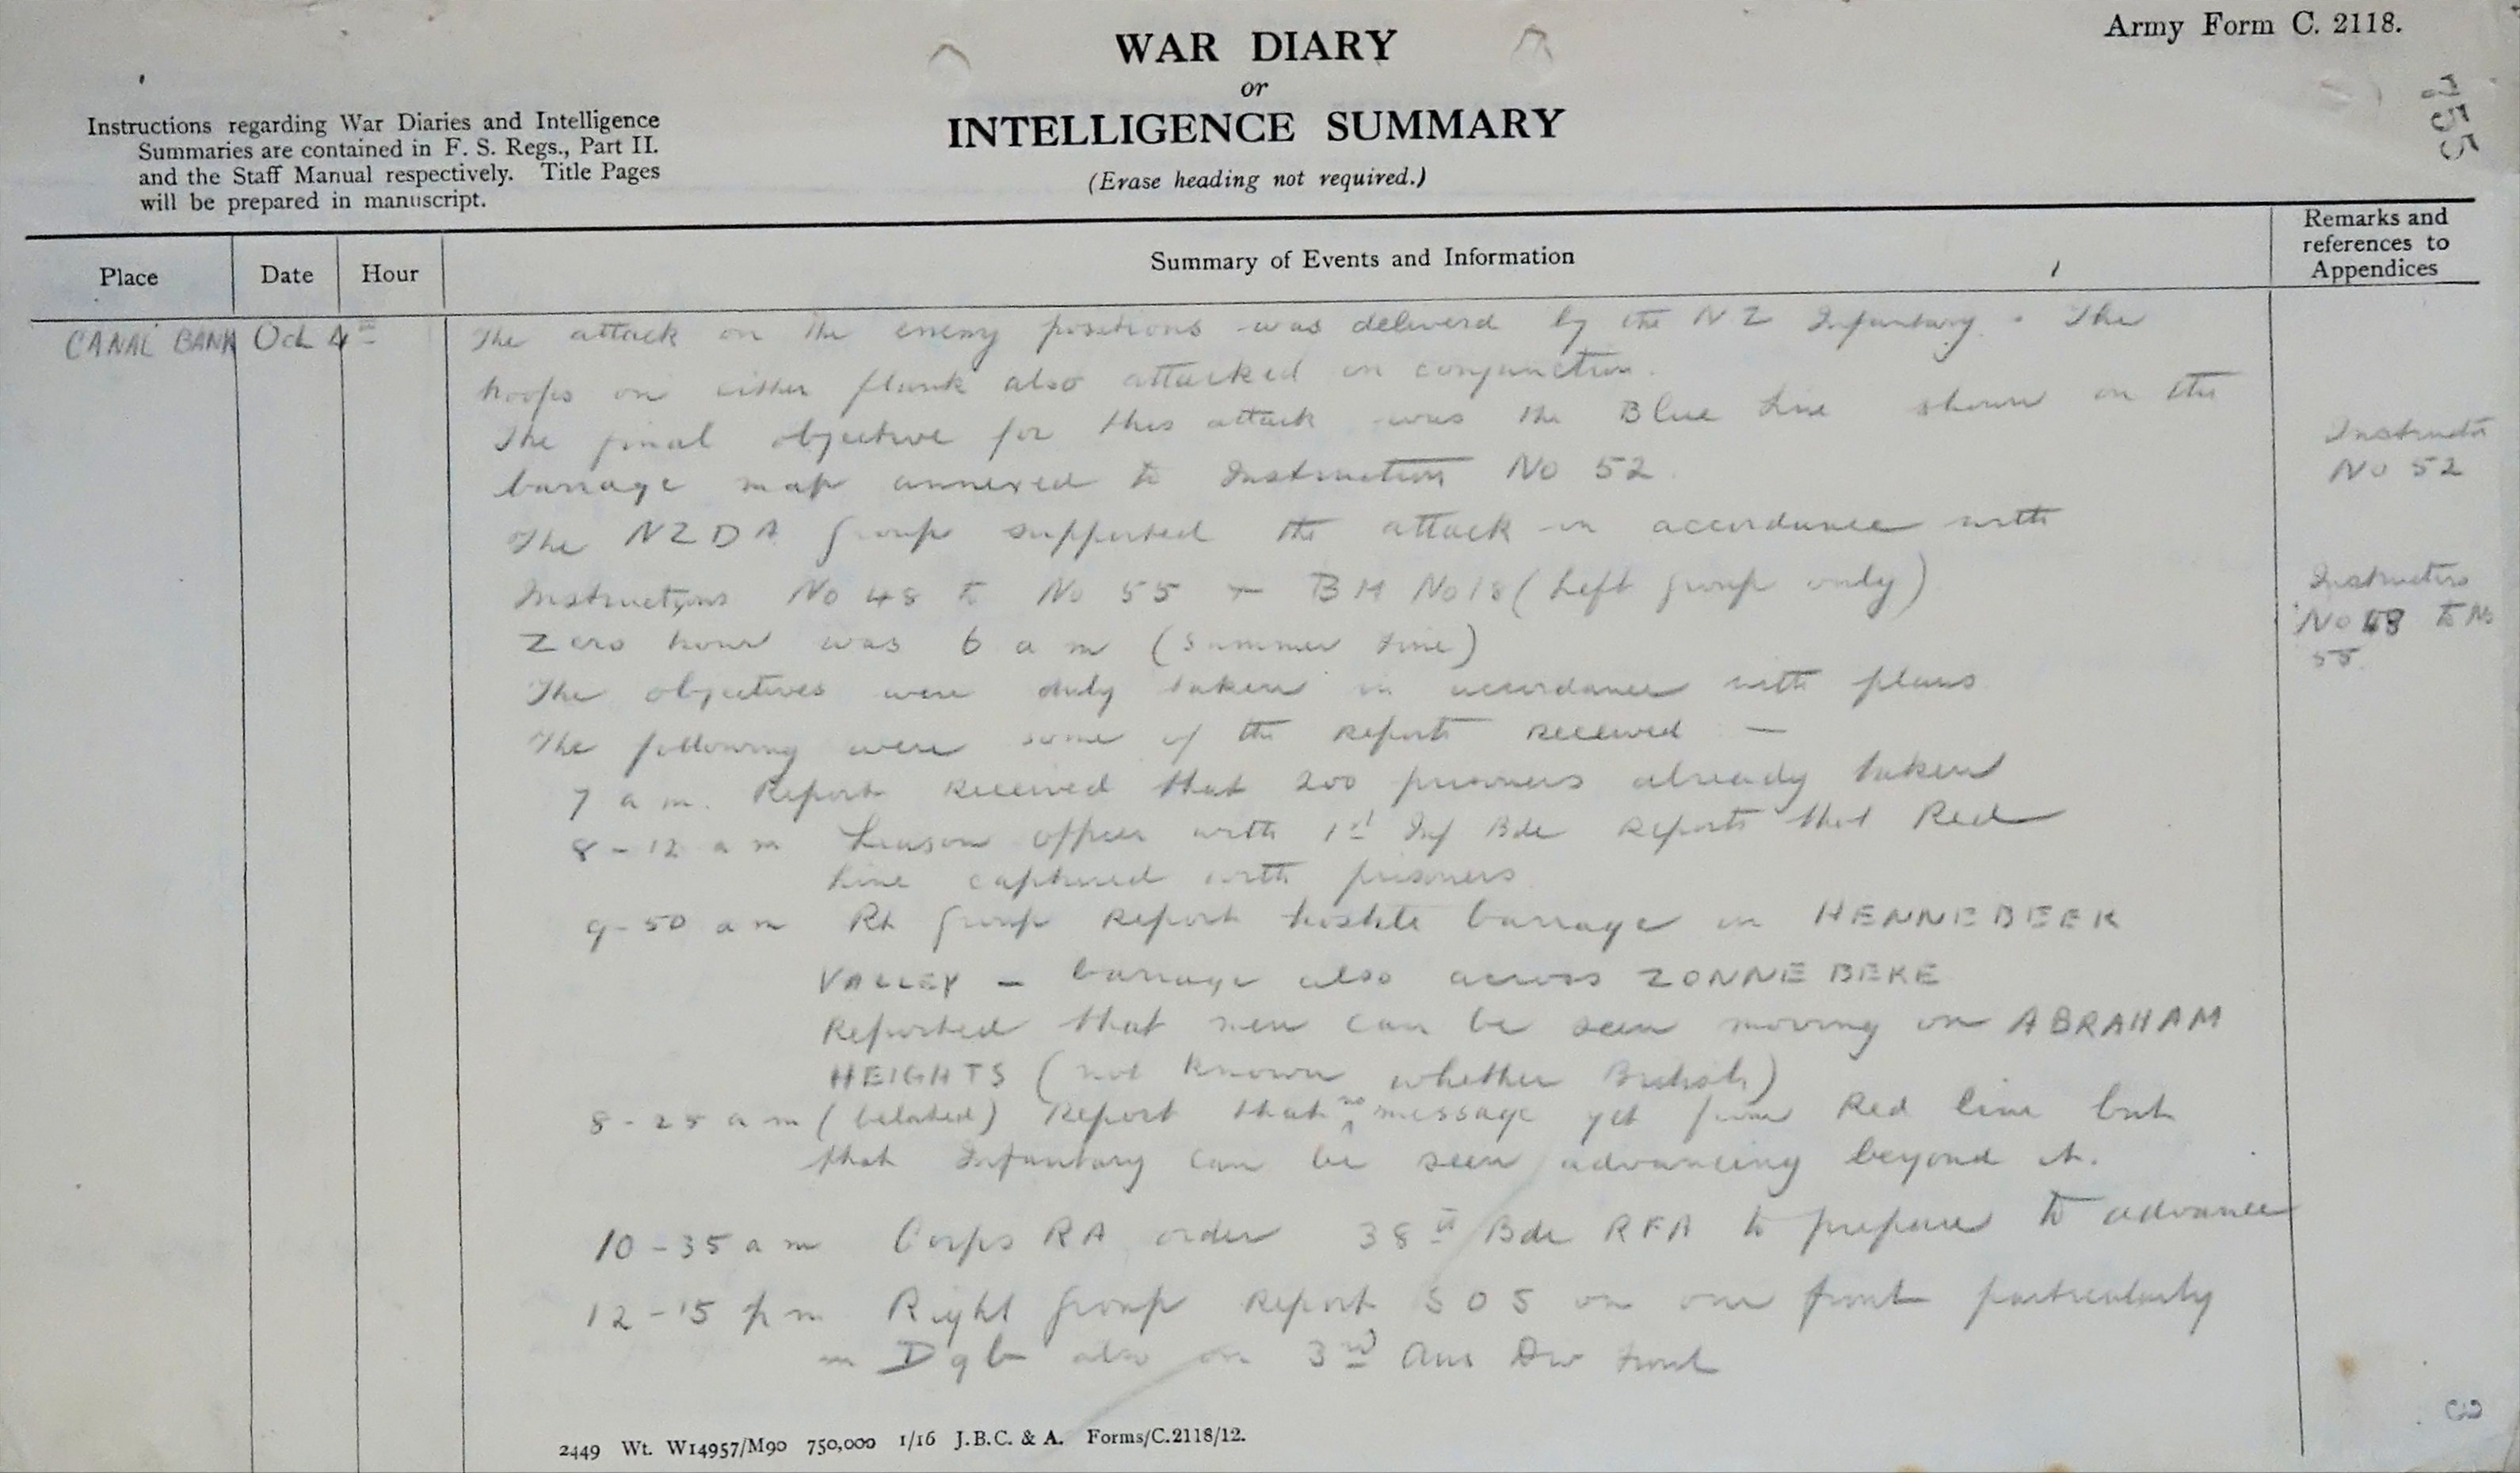 Army Form C. 2118.
WAR DIARY
or
INTELLIGENCE SUMMARY
(Erase heading not required.)
Instructions regarding War Diaries and Intelligence
Summaries are contained in F. S. Regs., Part II.
and the Staff Manual respectively. Title Pages
will be prepared in manuscript.
755
Place
Date
Hour
Summary of Events and Information
Remarks and
references to
Appendices
CANAL BANK Oct 4th
The attack on the enemy positions was deliverd by the NZ Infantary. The
troops on either flank also attacked in conjunction.
The final objective for this attack was the Blue Line shown on the
barrage map annexed to Instruction No 52.
Instructn
No 52
The NZDA Group supported the attack in accordance with
Instructions No 48 to No 55 + BM No 18 (Left group only)
Instructions
No 48 to No
55.
Zero hour was 6 a m (Summer time)
The objectives were duly taken in accordance with plans
The following were some of the reports received —
7 a m. Report received that 200 prisoners already taken
8-12 a m Liason officer with 1st Inf Bde reports that Red
Line captured with prisoners
9-50 a m Rt Group report hostile barrage in HENNEBEEK
VALLEY - barrage also across ZONNEBEKE
Reported that men can be seen moving on ABRAHAM
HEIGHTS (not known whether British)
8-25 a m (belated) Report that no message yet from Red line but
that Infantary can be seen advancing beyond it.
10-35 a m Corps RA order 38th Bde RFA to prepare to advance
12-15 p m Right Group report SOS on our front particularly
in D 9 b also on 3rd Aus Div front
2449 Wt. W14957/M90 750,000 1/16 J.B.C. & A. Forms/C.2118/12.